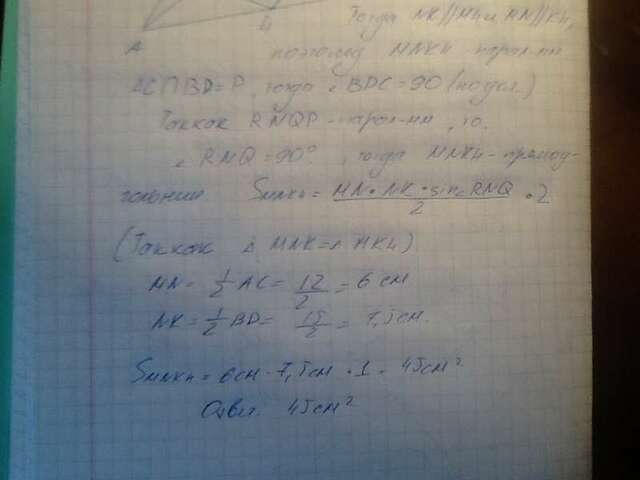 A
H
Тогда NK||MH и MN||KH,
поэтому MNKH парал-мм
AC∩BD=P, тогда ∠BPC=90 (по усл.)
Так как RNQP - парал-мм, то
∠RNQ=90°, тогда MNKH - прямоу-
гольник S MNKH = MN·NK·sin∠RNQ / 2 · 2
(Так как △MNK=△MKH)
MN= 1/2 AC= 12/2 = 6 см
NK= 1/2 BD= 15/2 = 7,5 см.
S MNKH = 6 см · 7,5 см · 1 = 45 см²
Ответ. 45 см²